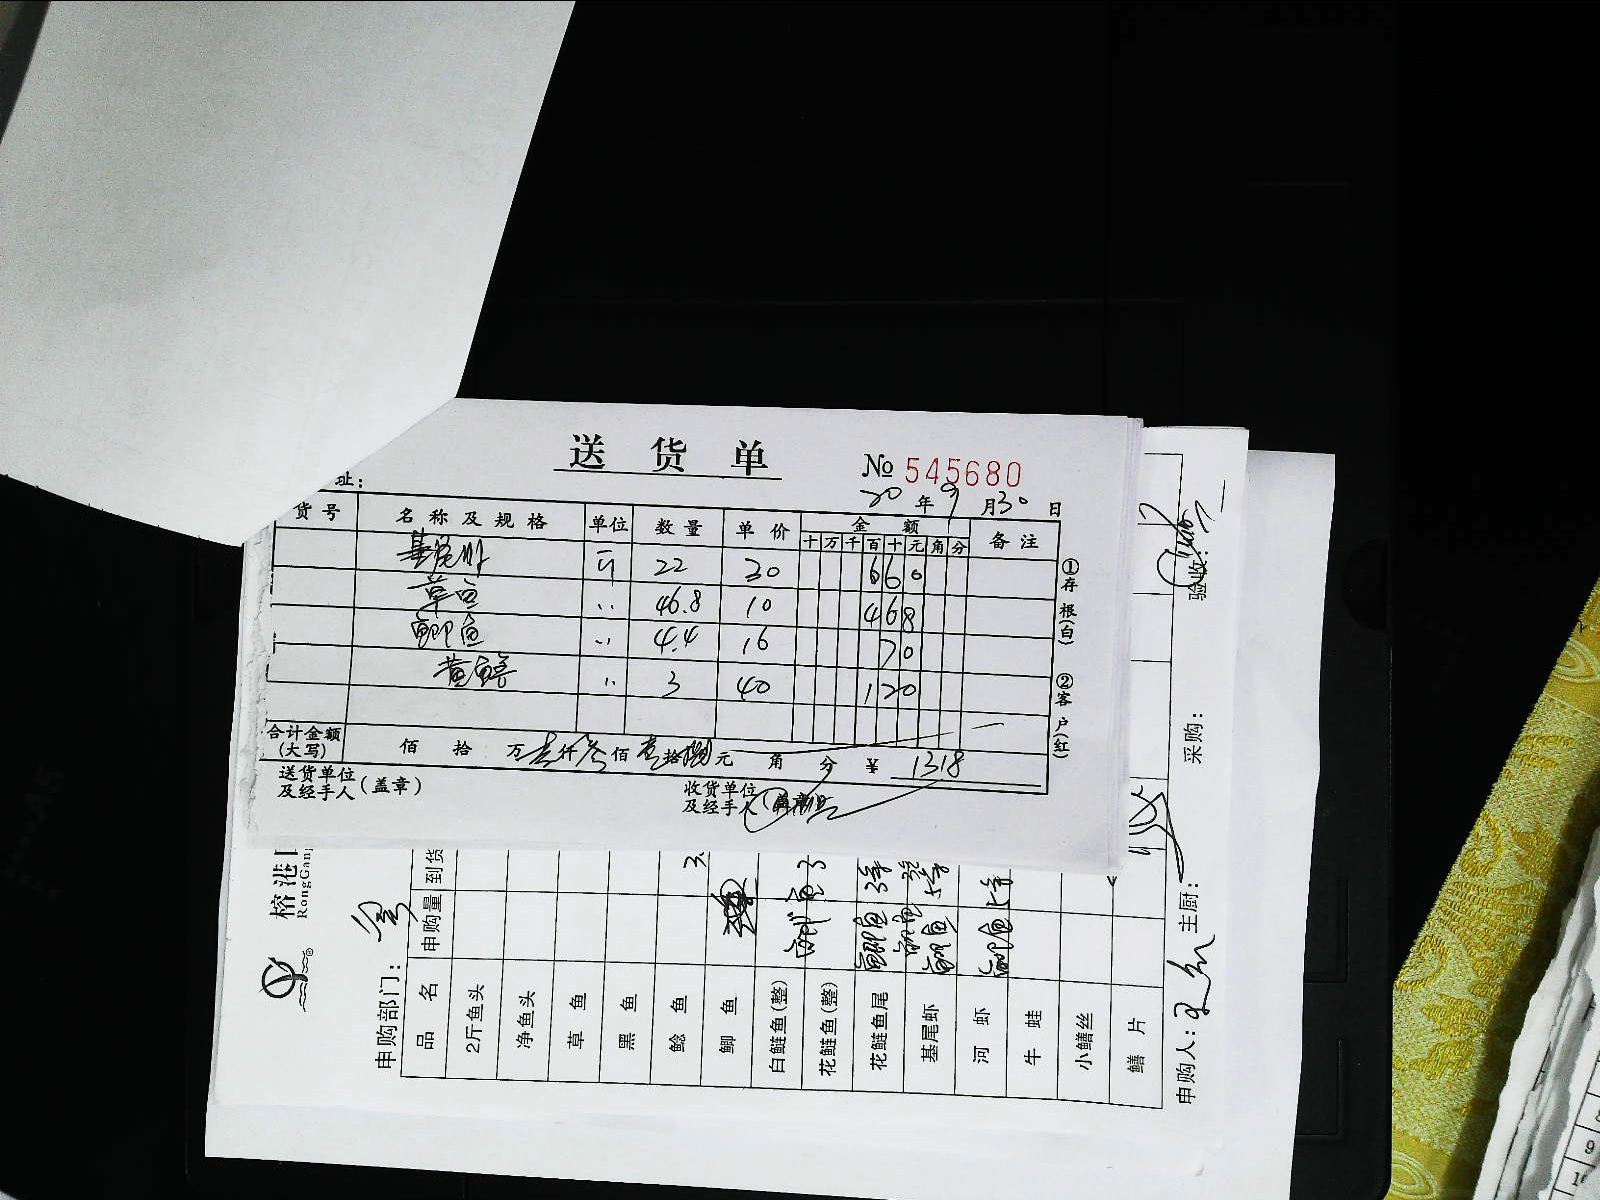 送货单
№ 545680
址：
20年9月30日
货号 名称及规格 单位 数量 单价 金额 备注
十 万 千 百 十 元 角 分
基尾虾 斤 22 30 660
草鱼 〃 46.8 10 468
鲫鱼 〃 4.4 16 70
黄鳝 〃 3 40 120
合计金额(大写) 佰 拾 万壹仟叁佰壹拾捌元 角 分 ¥ 1318
送货单位及经手人(盖章)
收货单位及经手人
①存根(白) ②客户(红)
榕港
RongGang
申购部门：
品名 申购量 到货
2斤鱼头
净鱼头
草鱼
黑鱼
鲶鱼 3.
鲫鱼
白鲢鱼(整)
花鲢鱼(整)
花鲢鱼尾
基尾虾
河虾
牛蛙
小鳝丝
鳝片
申购人：
主厨：
采购：
验收：
9